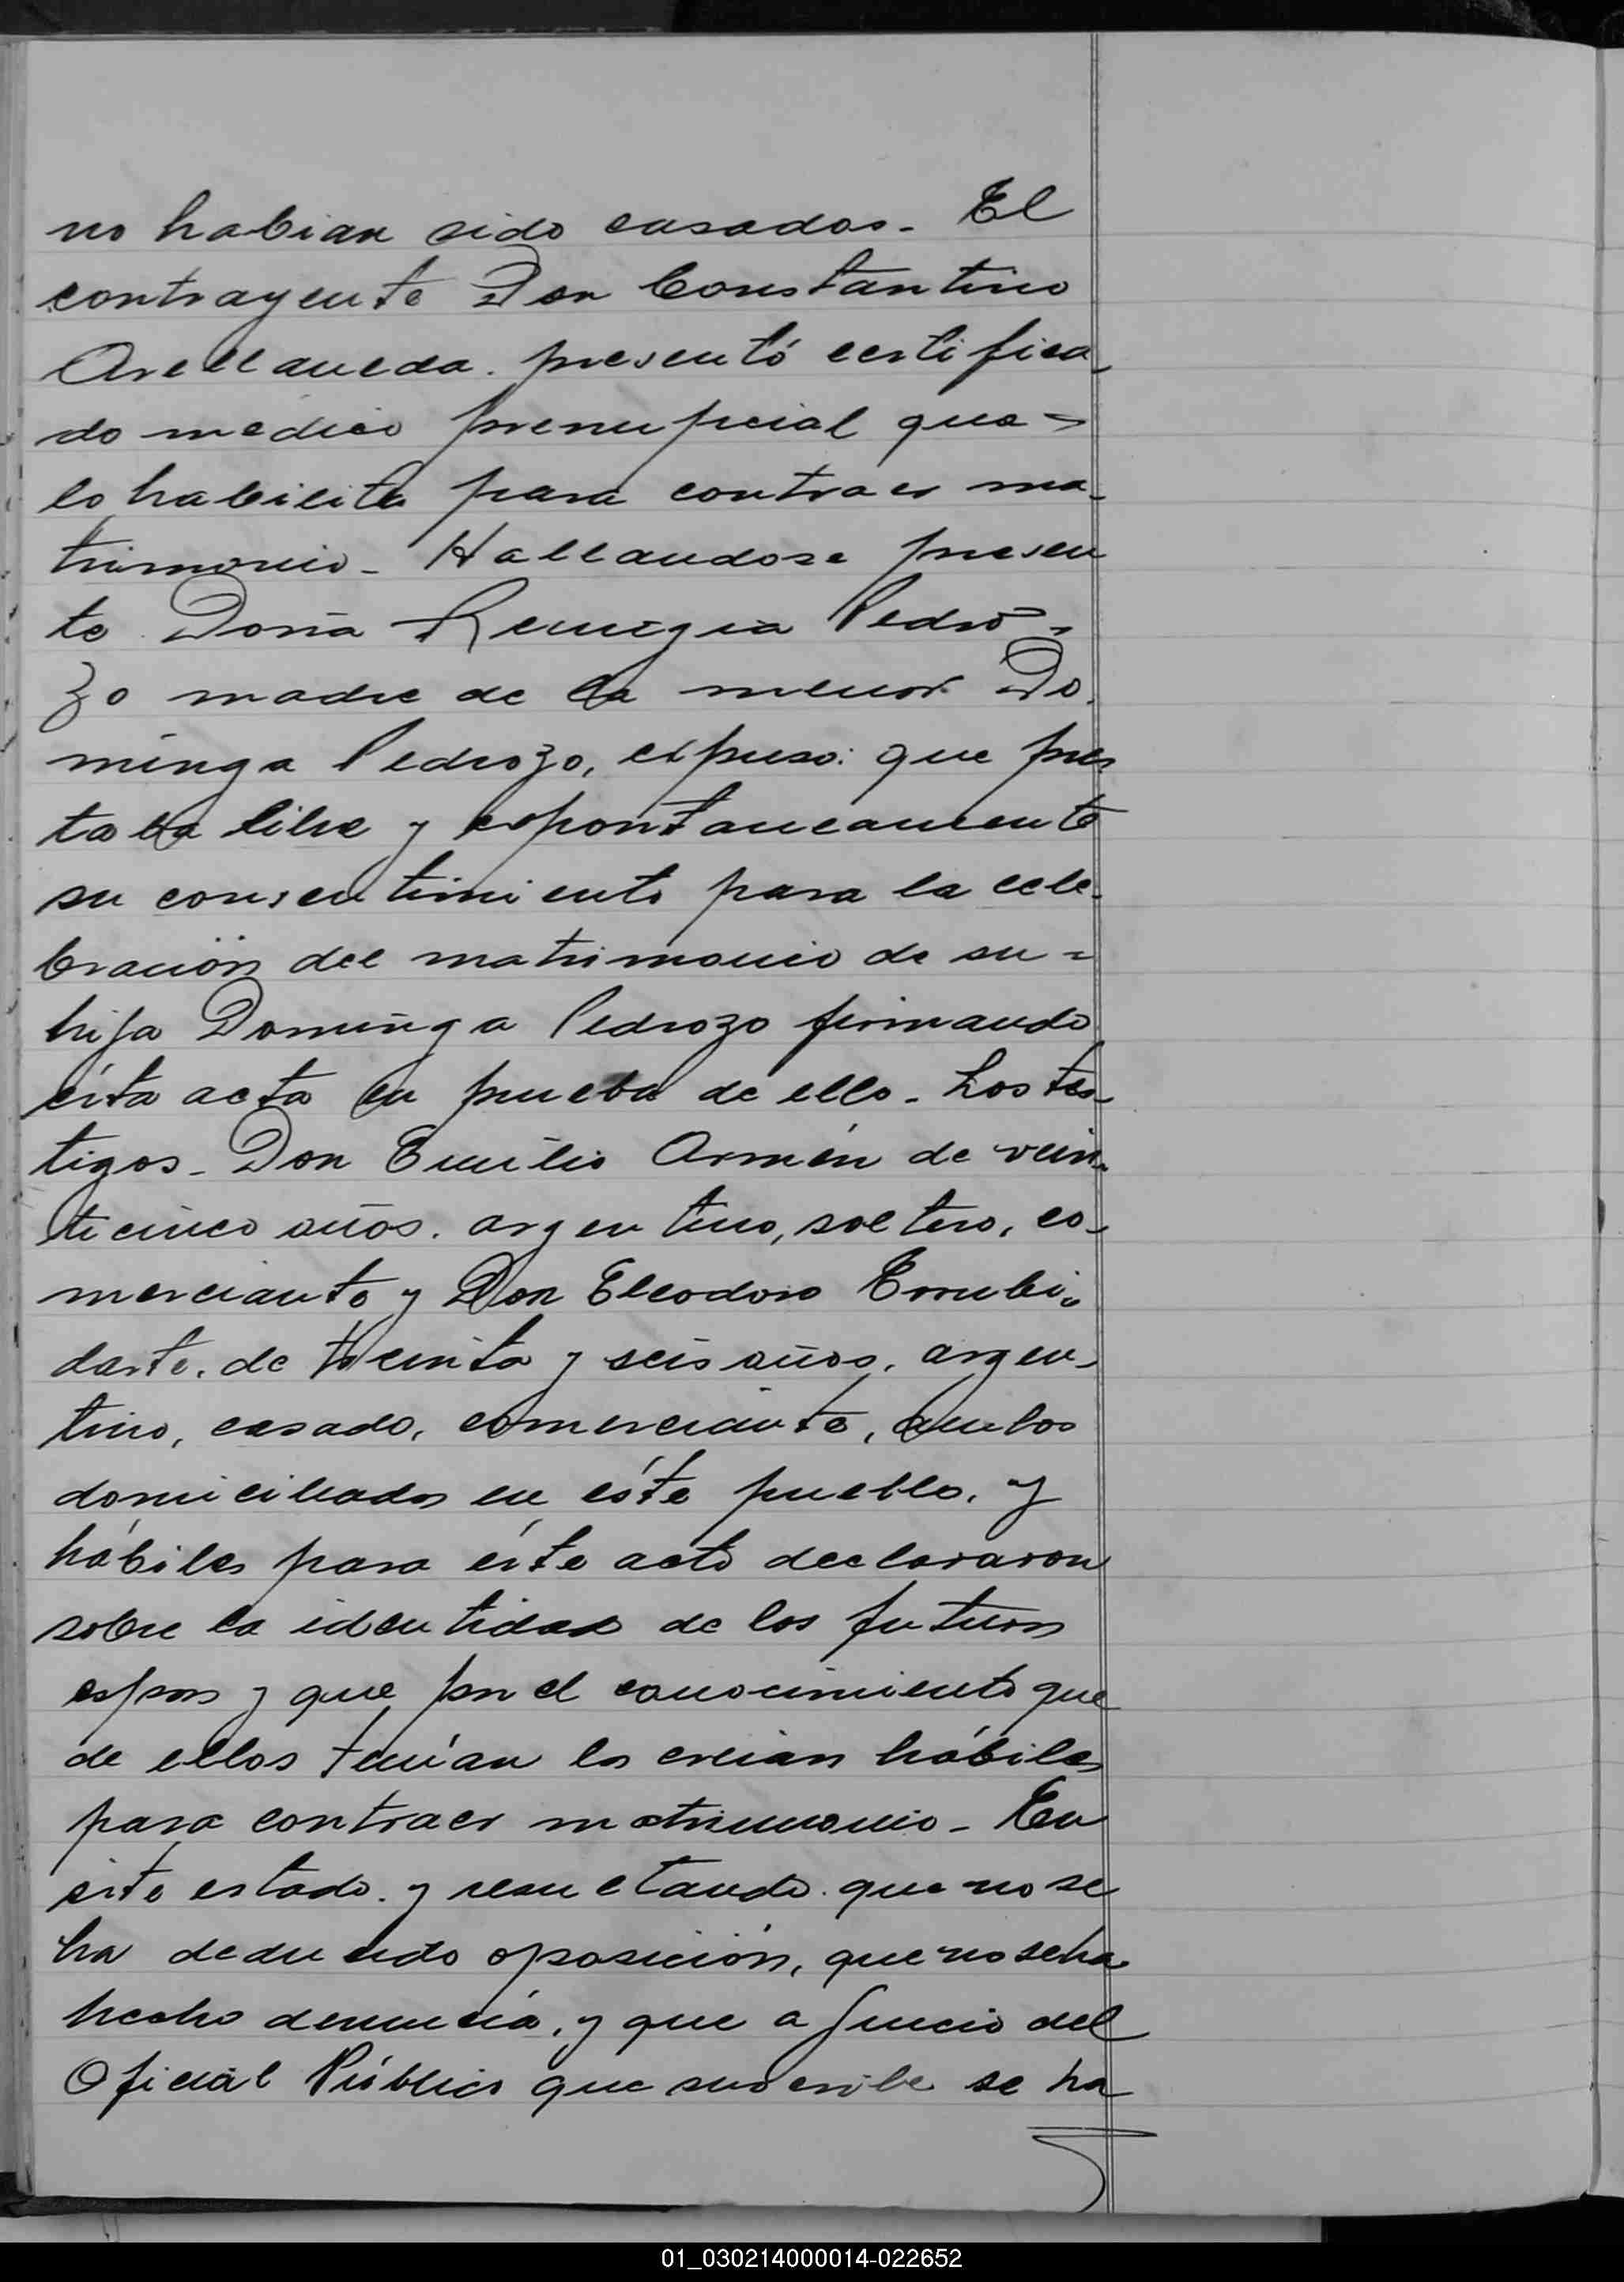 no habian sido casados. El
contrayente Don Constantino
Avellaneda. presentó certifica-
do medico prenupcial que =
lo habilita para contraer ma-
trimonio. Hallandose presen
te Doña Remigia Pedro =
zo madre de la menor Do.
minga Pedrozo, expuso: que pres
taba libre y espontaneamente
su consentimiento para la cele-
bración del matrimonio de su =
hija Dominga Pedrozo firmando
ésta acta en prueba de ello. Los tes-
tigos. Don Emilio Armén de vein-
ticinco años. argentino, soltero, co-
merciante y Don Eleodoro Errubi-
darte. de treinta y seis años, argen-
tino, casado, comerciante, ambos
domiciliados en éste pueblo, y
hábiles para éste acto declararon
sobre la identidad de los futuros
esposos y que por el conocimiento que
de ellos tenían los creian hábiles
para contraer matrimonio. En
éste estado. y resultando. que no se
ha deducido oposición, que no se ha
hecho denuncia, y que a juicio del
Oficial Público que suscribe se ha
01_030214000014-022652